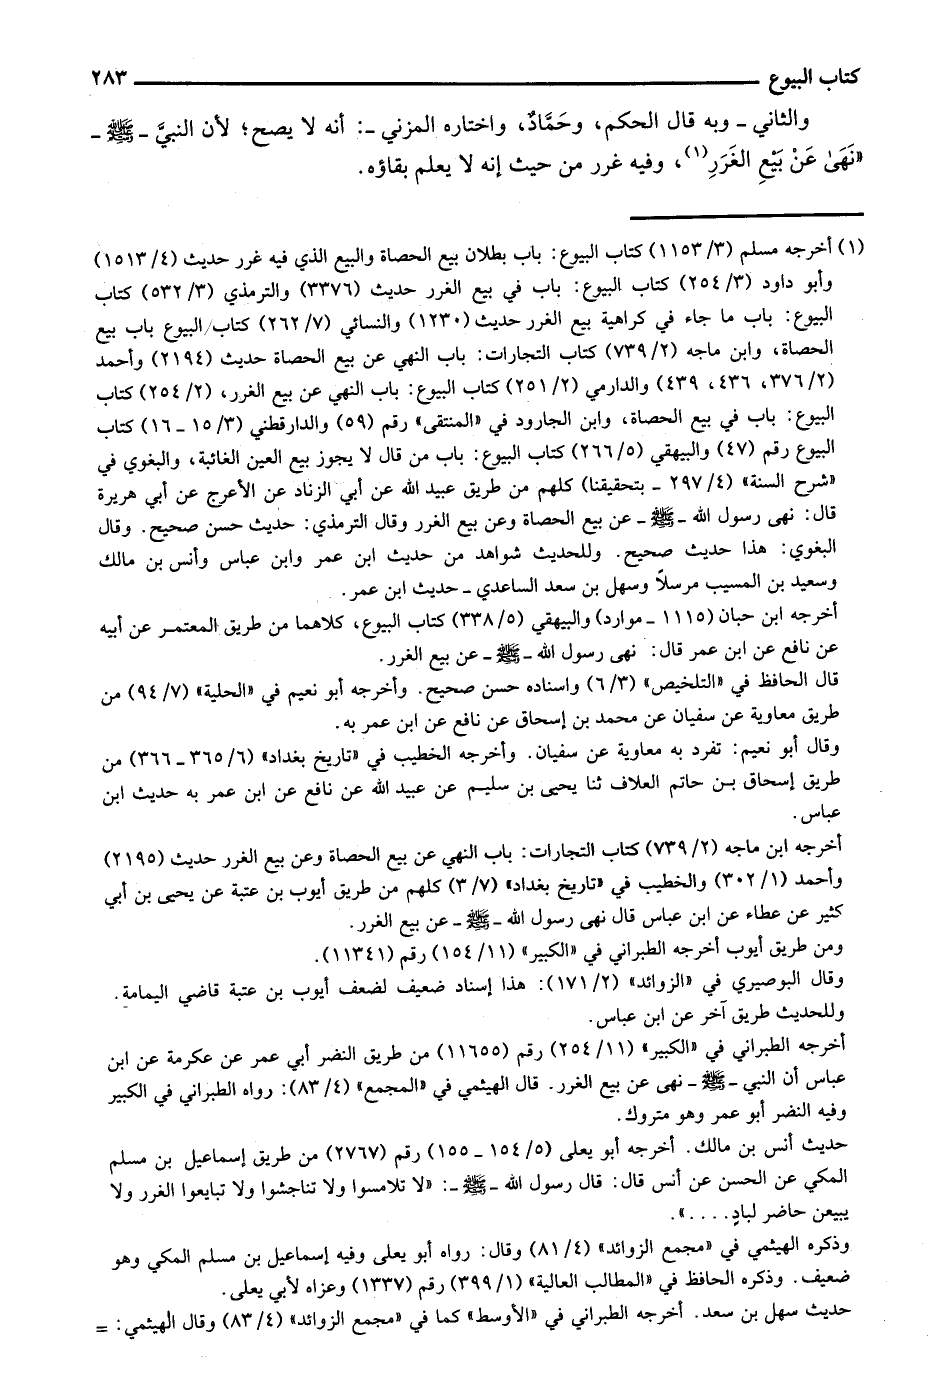 كتاب البيوع ٢٨٣
والثاني ـ وبه قال الحكم، وحَمَّادٌ، واختاره المزني ـ: أنه لا يصح؛ لأن النبيَّ ـ ﷺ ـ
«نَهَىٰ عَنْ بَيْعِ الغَرَرِ(١)، وفيه غرر من حيث إنه لا يعلم بقاؤه.
(١) أخرجه مسلم (٣/ ١١٥٣) كتاب البيوع: باب بطلان بيع الحصاة والبيع الذي فيه غرر حديث (٤/ ١٥١٣)
وأبو داود (٣/ ٢٥٤) كتاب البيوع: باب في بيع الغرر حديث (٣٣٧٦) والترمذي (٣/ ٥٣٢) كتاب
البيوع: باب ما جاء في كراهية بيع الغرر حديث (١٢٣٠) والنسائي (٧/ ٢٦٢) كتاب/البيوع باب بيع
الحصاة، وابن ماجه (٢/ ٧٣٩) كتاب التجارات: باب النهي عن بيع الحصاة حديث (٢١٩٤) وأحمد
(٢/ ٣٧٦، ٤٣٦، ٤٣٩) والدارمي (٢/ ٢٥١) كتاب البيوع: باب النهي عن بيع الغرر، (٢/ ٢٥٤) كتاب
البيوع: باب في بيع الحصاة، وابن الجارود في «المنتقى» رقم (٥٩) والدارقطني (٣/ ١٥ ـ ١٦) كتاب
البيوع رقم (٤٧) والبيهقي (٥/ ٢٦٦) كتاب البيوع: باب من قال لا يجوز بيع العين الغائبة، والبغوي في
«شرح السنة» (٤/ ٢٩٧ ـ بتحقيقنا) كلهم من طريق عبيد الله عن أبي الزناد عن الأعرج عن أبي هريرة
قال: نهى رسول الله ـ ﷺ ـ عن بيع الحصاة وعن بيع الغرر وقال الترمذي: حديث حسن صحيح. وقال
البغوي: هذا حديث صحيح. وللحديث شواهد من حديث ابن عمر وابن عباس وأنس بن مالك
وسعيد بن المسيب مرسلاً وسهل بن سعد الساعدي ـ حديث ابن عمر.
أخرجه ابن حبان (١١١٥ ـ موارد) والبيهقي (٥/ ٣٣٨) كتاب البيوع، كلاهما من طريق المعتمر عن أبيه
عن نافع عن ابن عمر قال: نهى رسول الله ـ ﷺ ـ عن بيع الغرر.
قال الحافظ في «التلخيص» (٣/ ٦) واسناده حسن صحيح. وأخرجه أبو نعيم في «الحلية» (٧/ ٩٤) من
طريق معاوية عن سفيان عن محمد بن إسحاق عن نافع عن ابن عمر به.
وقال أبو نعيم: تفرد به معاوية عن سفيان. وأخرجه الخطيب في «تاريخ بغداد» (٦/ ٣٦٥ ـ ٣٦٦) من
طريق إسحاق بن حاتم العلاف ثنا يحيى بن سليم عن عبيد الله عن نافع عن ابن عمر به حديث ابن
عباس.
أخرجه ابن ماجه (٢/ ٧٣٩) كتاب التجارات: باب النهي عن بيع الحصاة وعن بيع الغرر حديث (٢١٩٥)
وأحمد (١/ ٣٠٢) والخطيب في «تاريخ بغداد» (٧/ ٣) كلهم من طريق أيوب بن عتبة عن يحيى بن أبي
كثير عن عطاء عن ابن عباس قال نهى رسول الله ـ ﷺ ـ عن بيع الغرر.
ومن طريق أيوب أخرجه الطبراني في «الكبير» (١١/ ١٥٤) رقم (١١٣٤١).
وقال البوصيري في «الزوائد» (٢/ ١٧١): هذا إسناد ضعيف لضعف أيوب بن عتبة قاضي اليمامة.
وللحديث طريق آخر عن ابن عباس.
أخرجه الطبراني في «الكبير» (١١/ ٢٥٤) رقم (١١٦٥٥) من طريق النضر أبي عمر عن عكرمة عن ابن
عباس أن النبي ـ ﷺ ـ نهى عن بيع الغرر. قال الهيثمي في «المجمع» (٤/ ٨٣): رواه الطبراني في الكبير
وفيه النضر أبو عمر وهو متروك.
حديث أنس بن مالك. أخرجه أبو يعلى (٥/ ١٥٤ ـ ١٥٥) رقم (٢٧٦٧) من طريق إسماعيل بن مسلم
المكي عن الحسن عن أنس قال: قال رسول الله ـ ﷺ ـ: «لا تلامسوا ولا تناجشوا ولا تبايعوا الغرر ولا
يبيعن حاضر لبادٍ....».
وذكره الهيثمي في «مجمع الزوائد» (٤/ ٨١) وقال: رواه أبو يعلى وفيه إسماعيل بن مسلم المكي وهو
ضعيف. وذكره الحافظ في «المطالب العالية» (١/ ٣٩٩) رقم (١٣٣٧) وعزاه لأبي يعلى.
حديث سهل بن سعد. أخرجه الطبراني في «الأوسط» كما في «مجمع الزوائد» (٤/ ٨٣) وقال الهيثمي: =